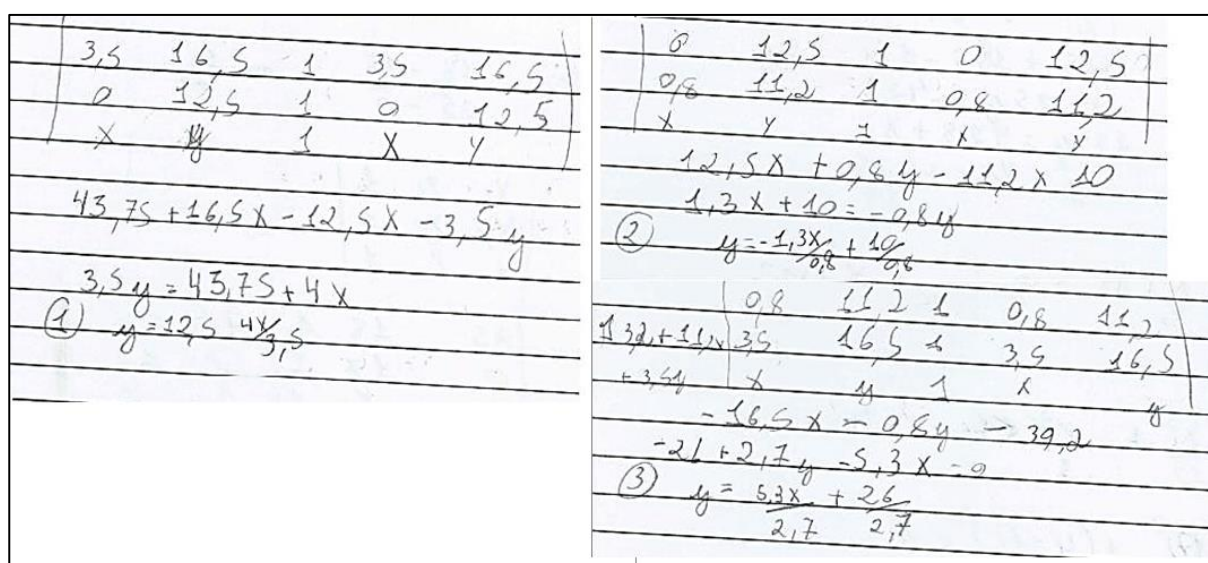 3,5 16,5 1 3,5 16,5
0 12,5 1 0 12,5
X y 1 X y
43,75 + 16,5x - 12,5x - 3,5y
3,5y = 43,75 + 4x
① y = 12,5 4x/3,5
0 12,5 1 0 12,5
0,8 11,2 1 0,8 11,2
X y 1 X y
12,5x + 0,8y - 11,2x 10
1,3x + 10 = -0,8y
② y = -1,3x/0,8 + 10/0,8
0,8 11,2 1 0,8 11,2
3,5 16,5 1 3,5 16,5
X y 1 X y
+ 3,5y
- 16,5x - 0,8y - 39,2
-26 + 2,7y - 5,3x = 0
③ y = 5,3x/2,7 + 26/2,7